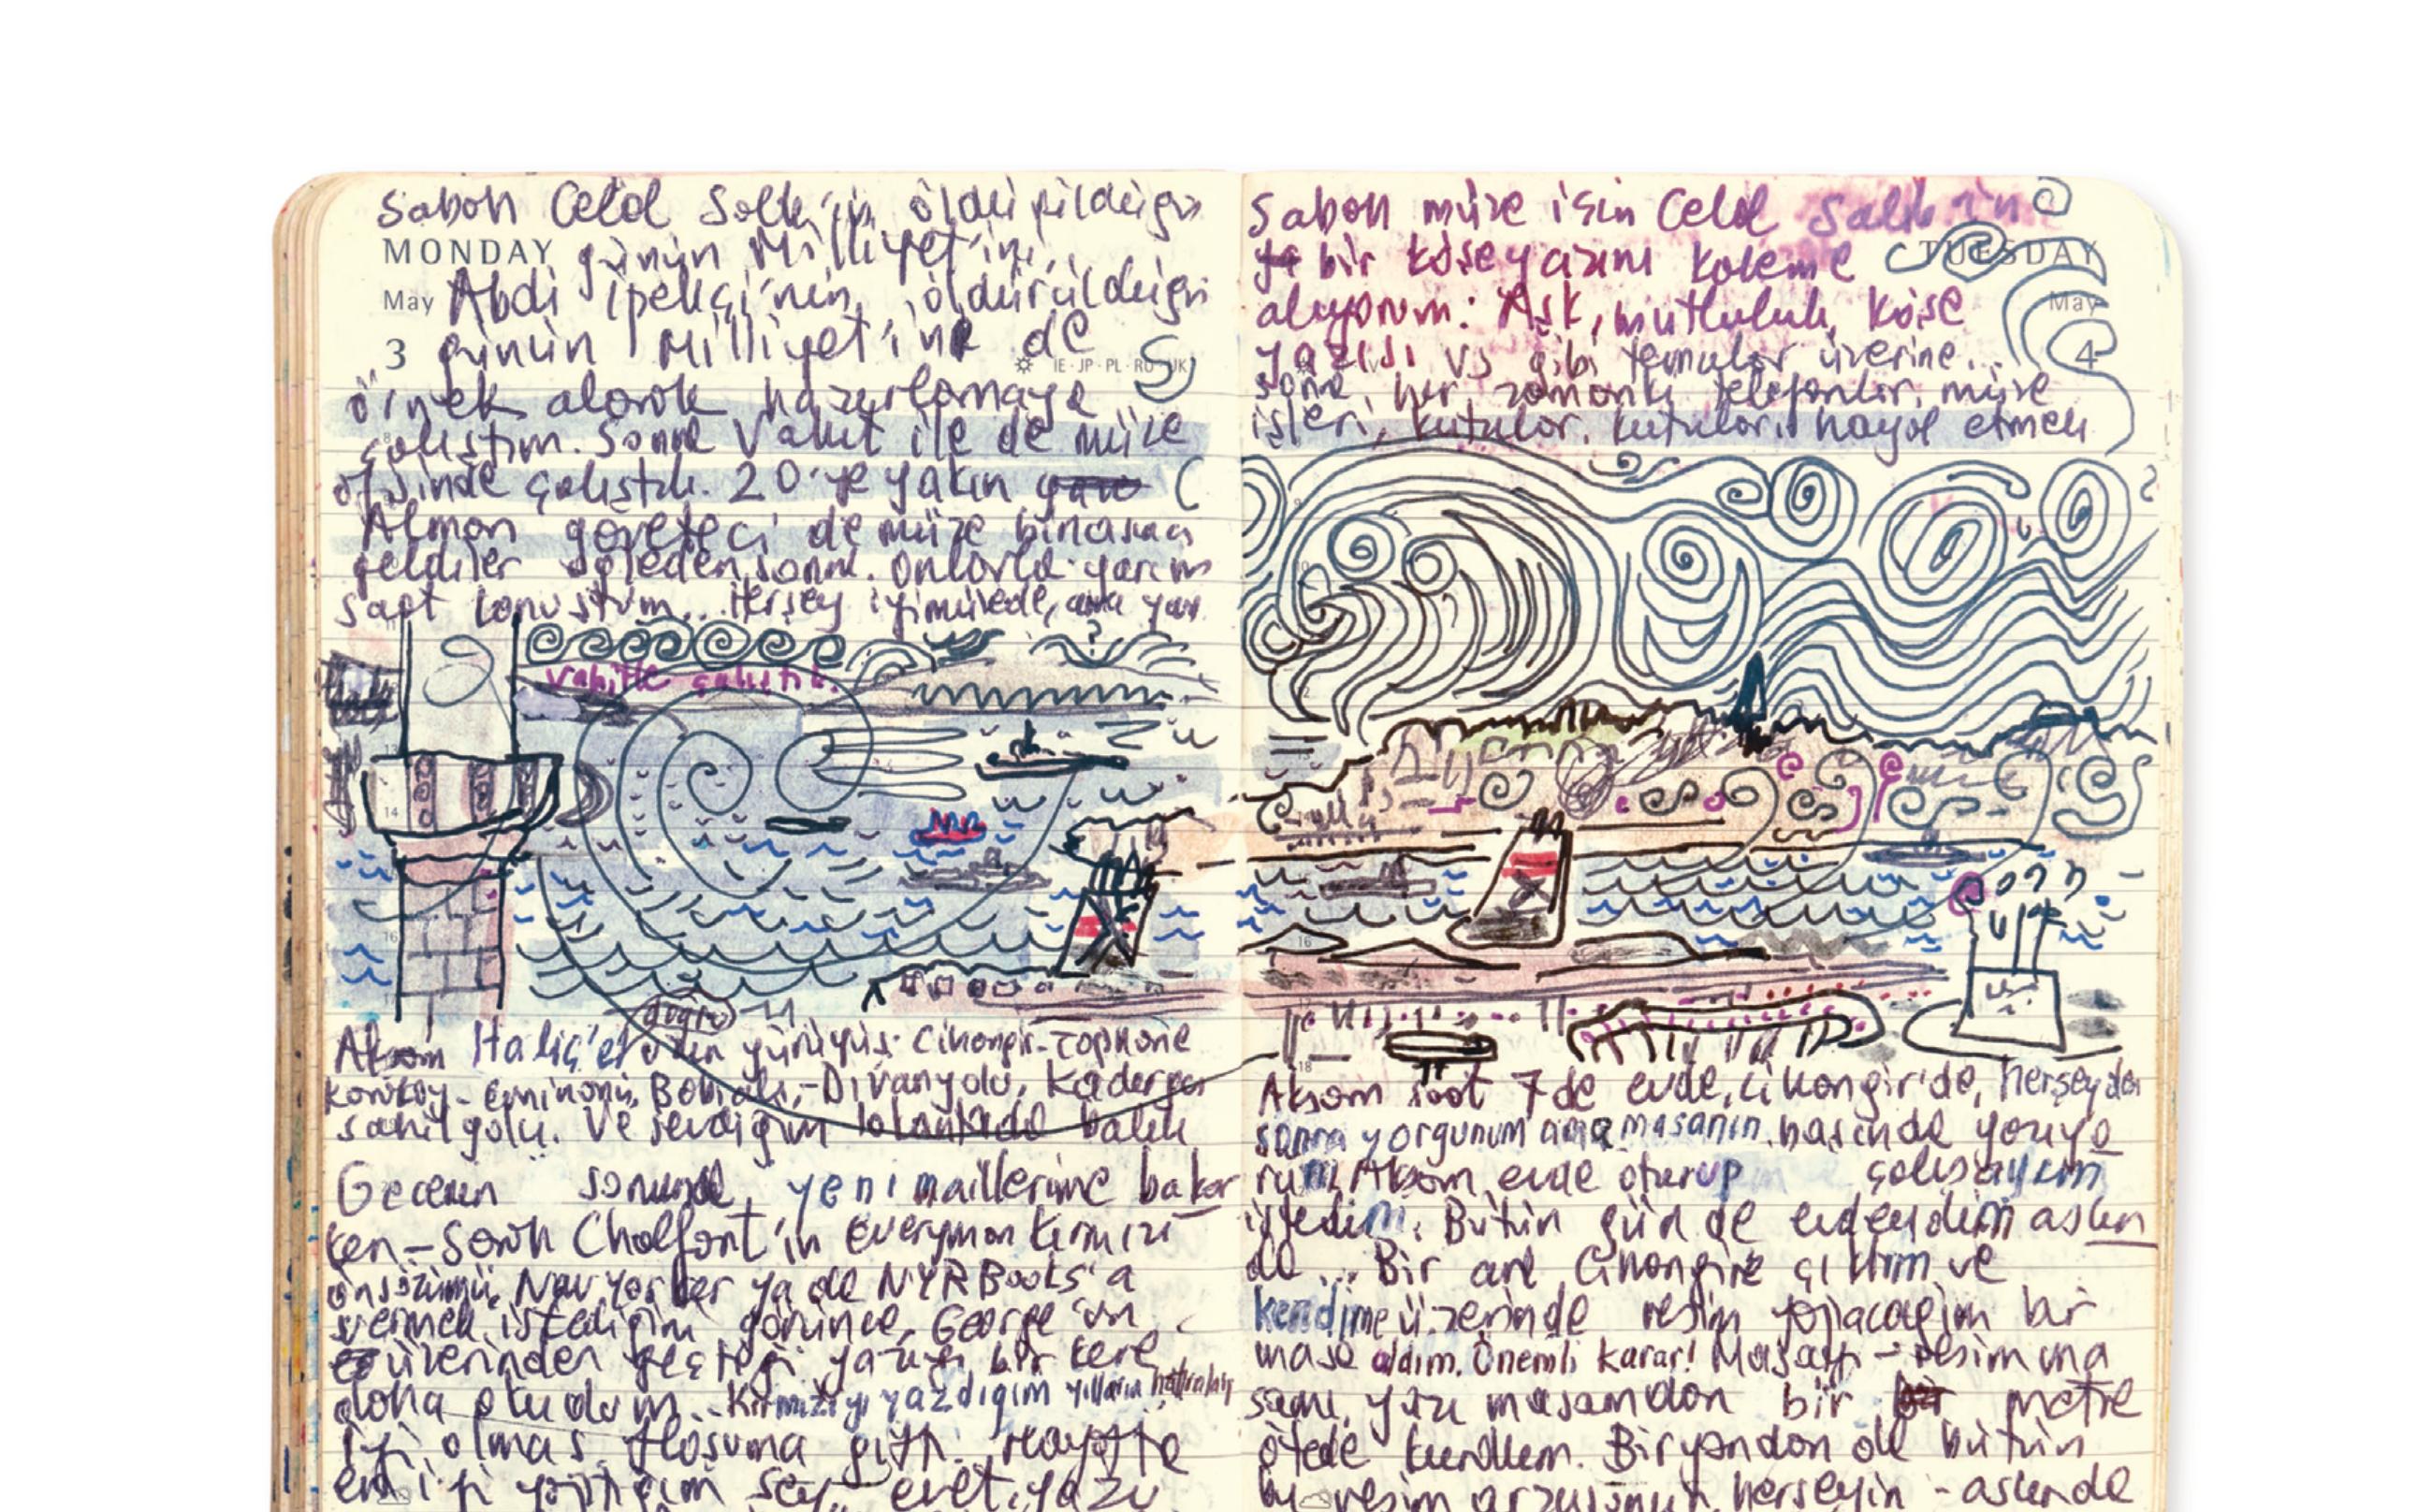 Sabah Celâl Salik'in öldürüldüğü
MONDAY günün Milliyet'ini,
May Abdi İpekçi'nin, öldürüldüğü
3 günün Milliyet'ini de
IE·JP·PL·RO·UK
örnek alarak hazırlamaya
çalıştım. Sonra Vahit ile de müze
ofisinde çalıştık. 20'ye yakın
Alman gazeteci de müze binasına
geldiler öğleden sonra. Onlarla yarım
saat konuştum... Herşey iyi müzede, ama
Vahitle çalıştık.
Akşam Haliç'e doğru uzun yürüyüş: Cihangir-Tophane
Karaköy-Eminönü, Babıali,-Divanyolu, Kadırga
sahil yolu. Ve sevdiğim lokantada balık
Gecenin sonunda, yeni maillerime bakar
ken-Sarah Chalfant'in Everyman Kırmızı
önsözümü, New Yorker ya da NYR Books'a
vermek istediğini görünce, George'un
üzerinden geçtiği yazıyı bir kere
daha okudum... Kırmızıyı yazdığım yılların hatıraları
iyi olması hoşuma gitti. Hayatta
en iyi yaptığım şey, evet, yazı
Sabah müze için Celâl Salik'in
TUESDAY
bir köşe yazısını kaleme
May
alıyorum: Aşk, mutluluk, köşe
4
yazısı vs gibi temalar üzerine...
sonra, her zamanki telefonlar, müze
işleri, kutular, kutuları hayal etmek
Akşam saat 7 de evde, Cihangir'de, herşeyden
sonra yorgunum ama masanın başında yazıyo
rum. Akşam evde oturup çalışayım
istedim. Bütün gün de evdeydim aslın
da... Bir ara Cihangire çıktım ve
kendime üzerinde resim yapacağım bir
masa aldım. Önemli karar! Masayı - resim ma
samı, yazı masamdan bir metre
ötede kurdum. Bir yandan da bütün
bu resim arzusunun, herşeyin - aslında